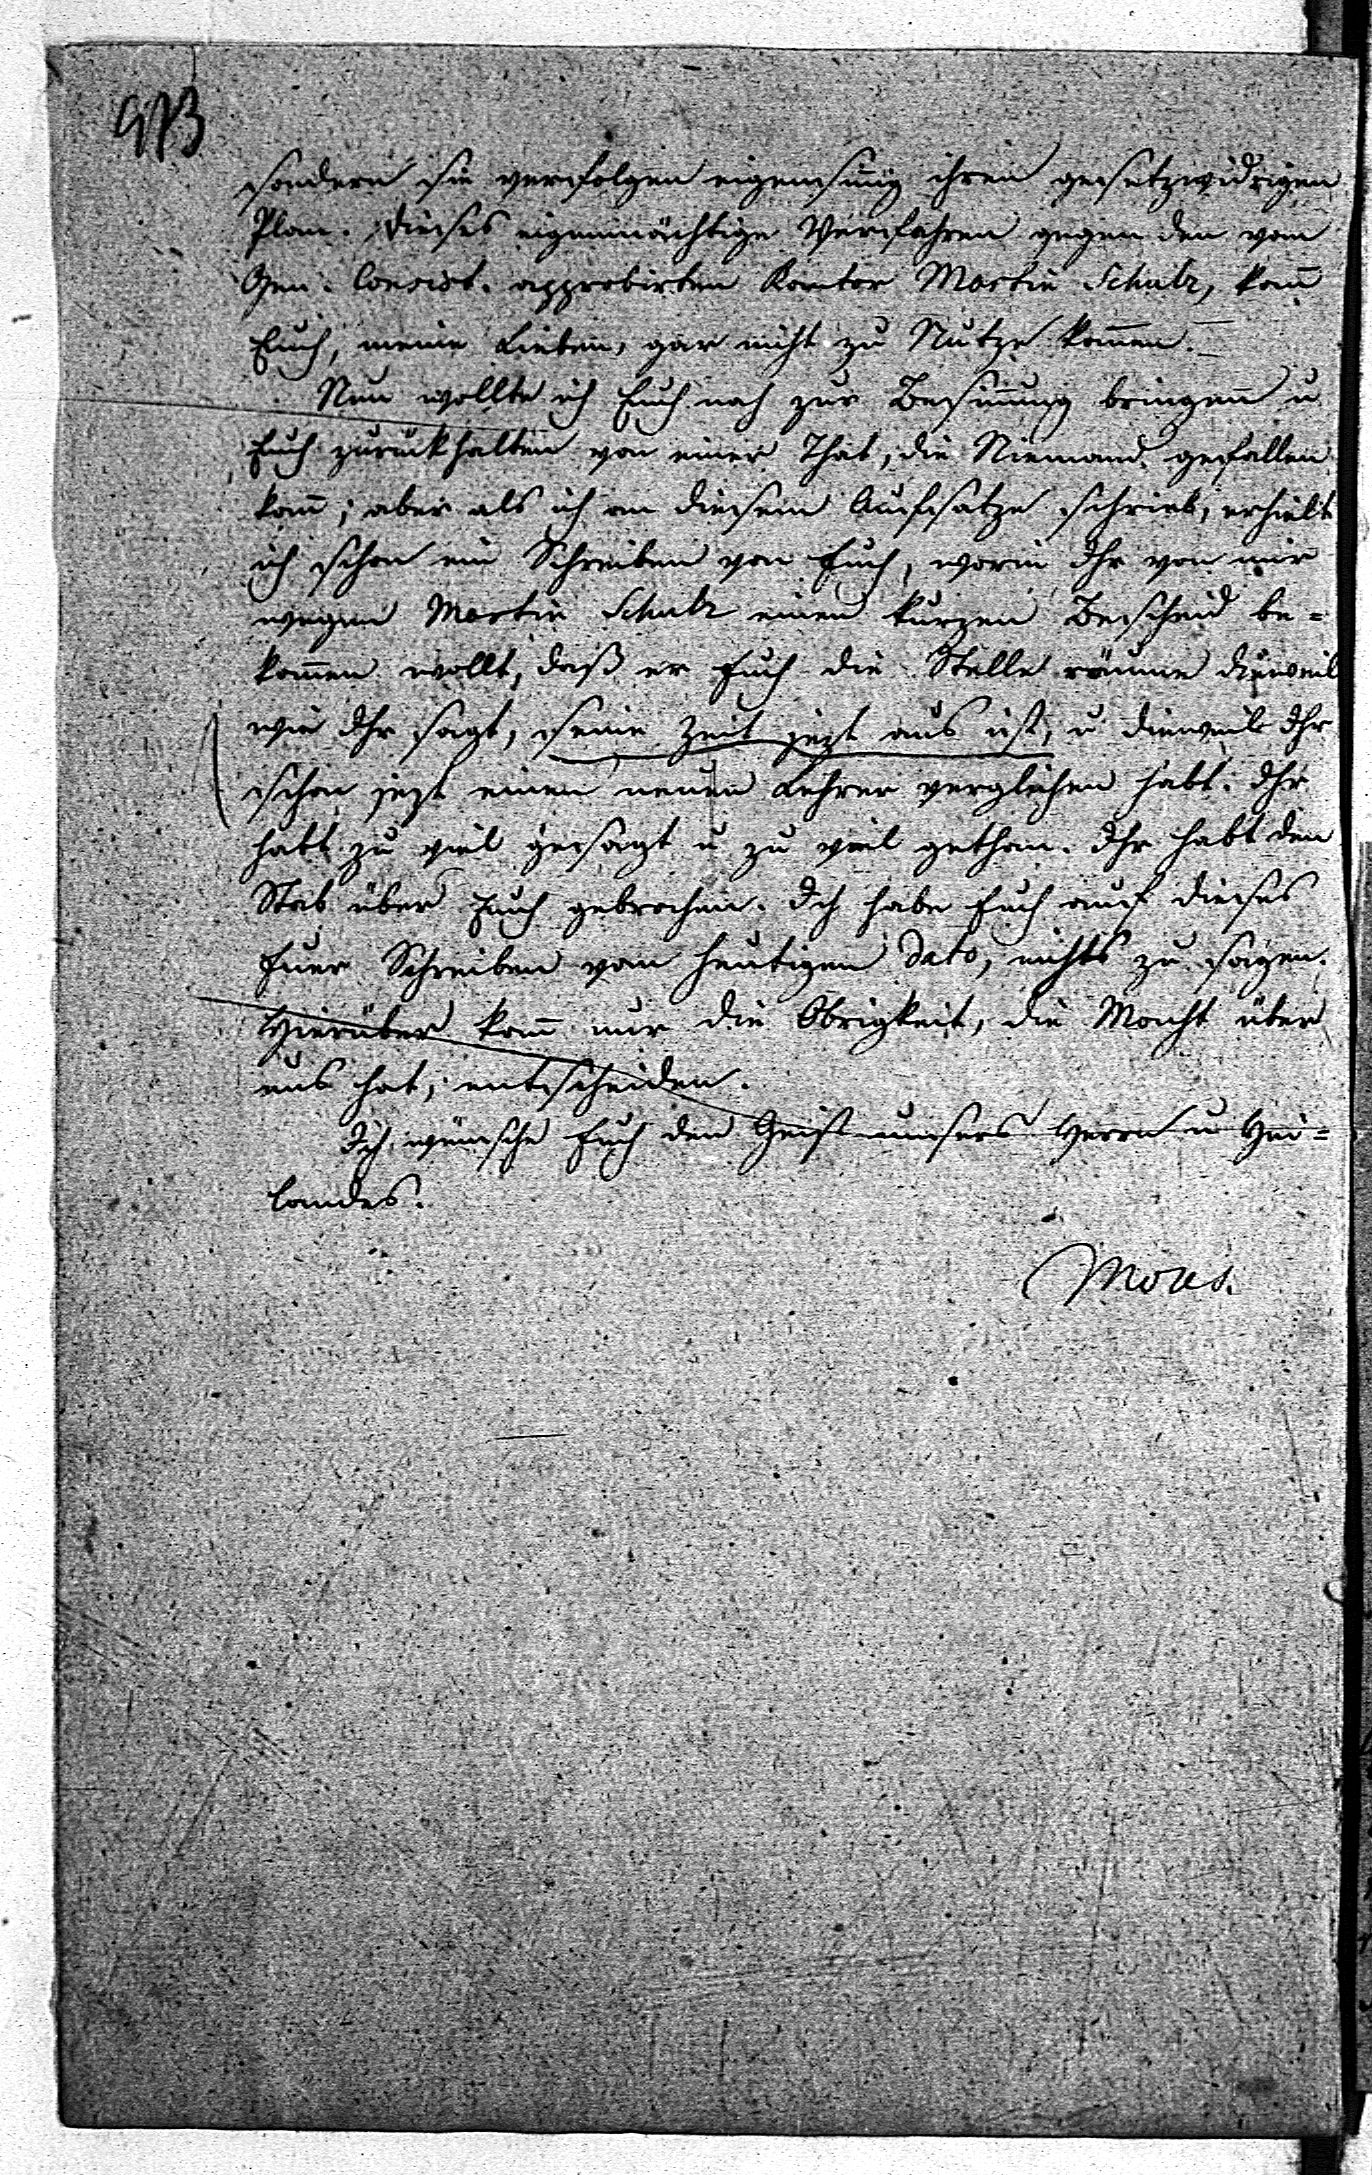 sondern sie verfolgen eigensinnig ihren gesetzwidrigen
Plan. Dieses eigenmächtige Verfahren gegen den vom
Gen. Consist. approbirten Kantor Martin Schulz, kañ
Euch, meine Lieben, gar nicht zu Nutze kom̃en.
Nun wollte ich Euch noch zur Besinnung bringen u
Euch zurückhalten von einer That, die Niemand gefallen
kañ; aber als ich an diesem Aufsatze schrieb, erhielt
ich schon ein Schreiben von Euch, worin Ihr von mir
wegen Martin Schulz einen kurzen Bescheid be=
kom̃en wollt, daß er Euch die Stelle räume dieweil
wie Ihr sagt, seine Zeit jezt aus ist, u dieweil Ihr
schon jezt einen neuen Lehrer verglichen habt. Ihr
habt zu viel gesagt u zu viel gethan. Ihr habt den
Stab über Euch gebrochen. Ich habe Euch auf dieses
Euer Schreiben vom heutigen Dato, nichts zu sagen.
Hierüber kañ nur die Obrigkeit, die Macht über
uns hat, entscheiden.
Ich wünsche Euch den Geist unsers Herrn u Hei=
landes.